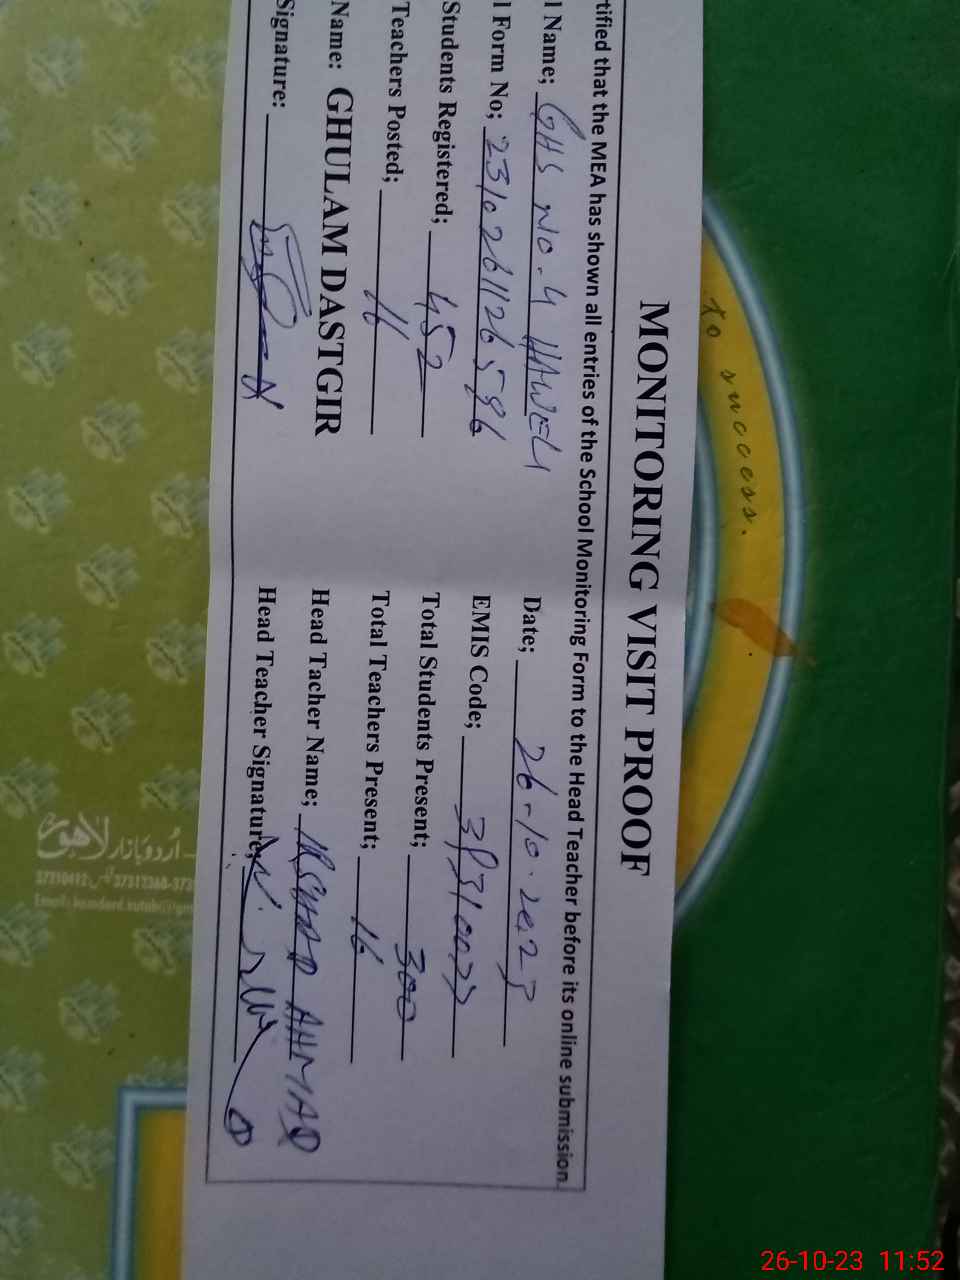 to success.
MONITORING VISIT PROOF
rtified that the MEA has shown all entries of the School Monitoring Form to the Head Teacher before its online submission.
l Name; GHS NO.4 HAVELI Date; 26-10-2023
l Form No; 2310261126586 EMIS Code;
Students Registered; 452 Total Students Present; 300
Teachers Posted; 16 Total Teachers Present; 16
Name: GHULAM DASTGIR Head Tacher Name; ARSHAD AHMAD
Signature: Head Teacher Signature;
اُردو بازار لاہور
26-10-23 11:52